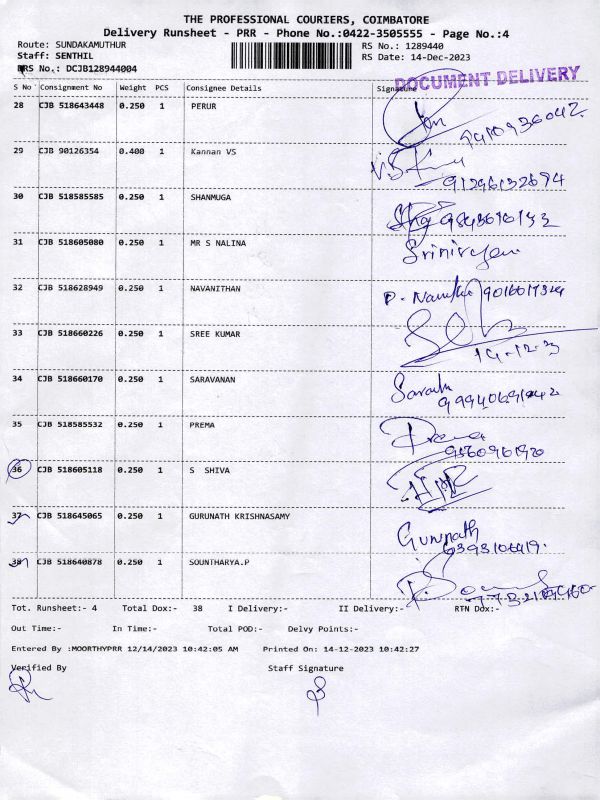 THE PROFESSIONAL COURIERS, COIMBATORE
Delivery Runsheet - PRR - Phone No.:0422-3505555 - Page No.:4
Route: SUNDAKAMUTHUR
RS No.: 1289440
Staff: SENTHIL
RS Date: 14-Dec-2023
DRS No.: DCJB128944004
DOCUMENT DELIVERY
S No Consignment No Weight PCS Consignee Details Signature
28 CJB 518643448 0.250 1 PERUR
29 CJB 90126354 0.400 1 Kannan VS
30 CJB 518585585 0.250 1 SHANMUGA
31 CJB 518605080 0.250 1 MR S NALINA
32 CJB 518628949 0.250 1 NAVANITHAN
33 CJB 518660226 0.250 1 SREE KUMAR
14-12-3
34 CJB 518660170 0.250 1 SARAVANAN
35 CJB 518585532 0.250 1 PREMA
36 CJB 518605118 0.250 1 S SHIVA
37 CJB 518645065 0.250 1 GURUNATH KRISHNASAMY
Gurunath
38 CJB 518640878 0.250 1 SOUNTHARYA.P
Tot. Runsheet:- 4 Total Dox:- 38 I Delivery:- II Delivery:- RTN Dox:-
Out Time:- In Time:- Total POD:- Delvy Points:-
Entered By :MOORTHYPRR 12/14/2023 10:42:05 AM Printed On: 14-12-2023 10:42:27
Verified By Staff Signature